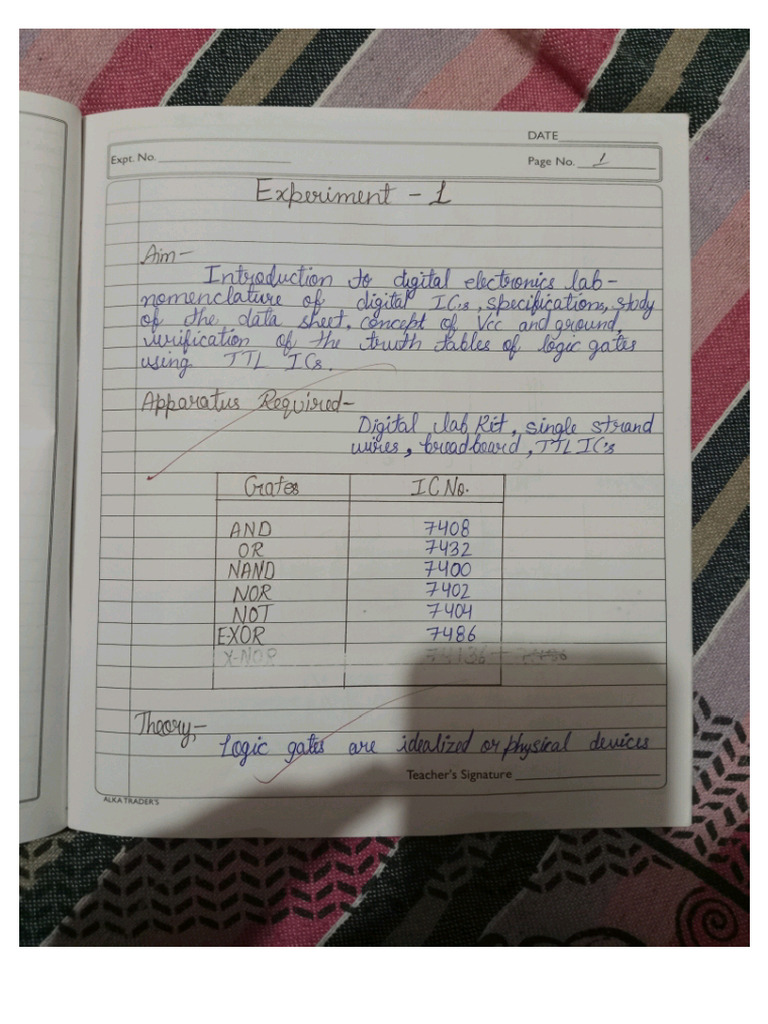 DATE
Expt. No.
Page No. 1
Experiment - 1
Aim-
Introduction to digital electronics lab-
nomenclature of digital ICs, specifications, study
of the data sheet, concept of Vcc and ground,
verification of the truth tables of logic gates
using TTL ICs.
Apparatus Required-
Digital lab Kit, single strand
wires, breadboard, TTL IC's
Gates IC No.
AND 7408
OR 7432
NAND 7400
NOR 7402
NOT 7404
EXOR 7486
X-NOR 74136
Theory,-
Logic gates are idealized or physical devices
Teacher's Signature
ALKA TRADER'S